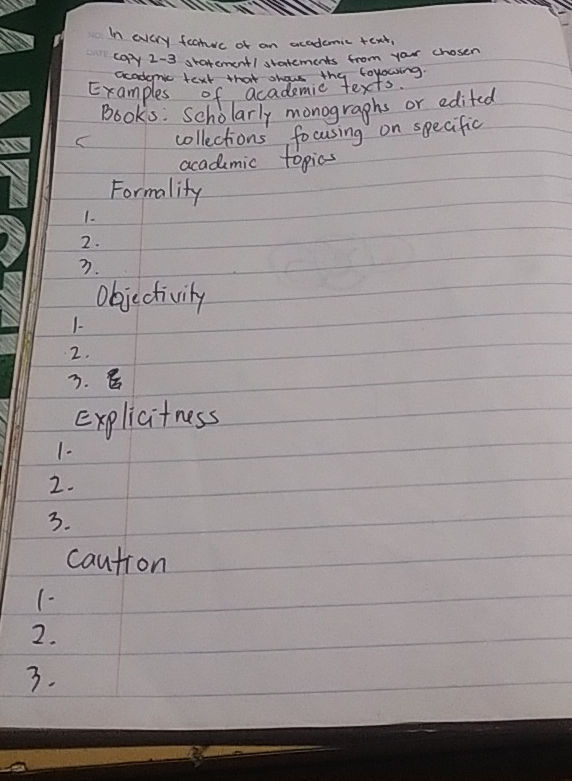 In every feature of an academic text,
copy 2-3 statement/ statements from your chosen
academic text that shows the following.
Examples of academic texts.
Books: Scholarly monographs or edited
collections focusing on specific
academic topics
Formality
1.
2.
3.
Objectivity
1.
2.
3.
Explicitness
1.
2.
3.
Caution
1.
2.
3.